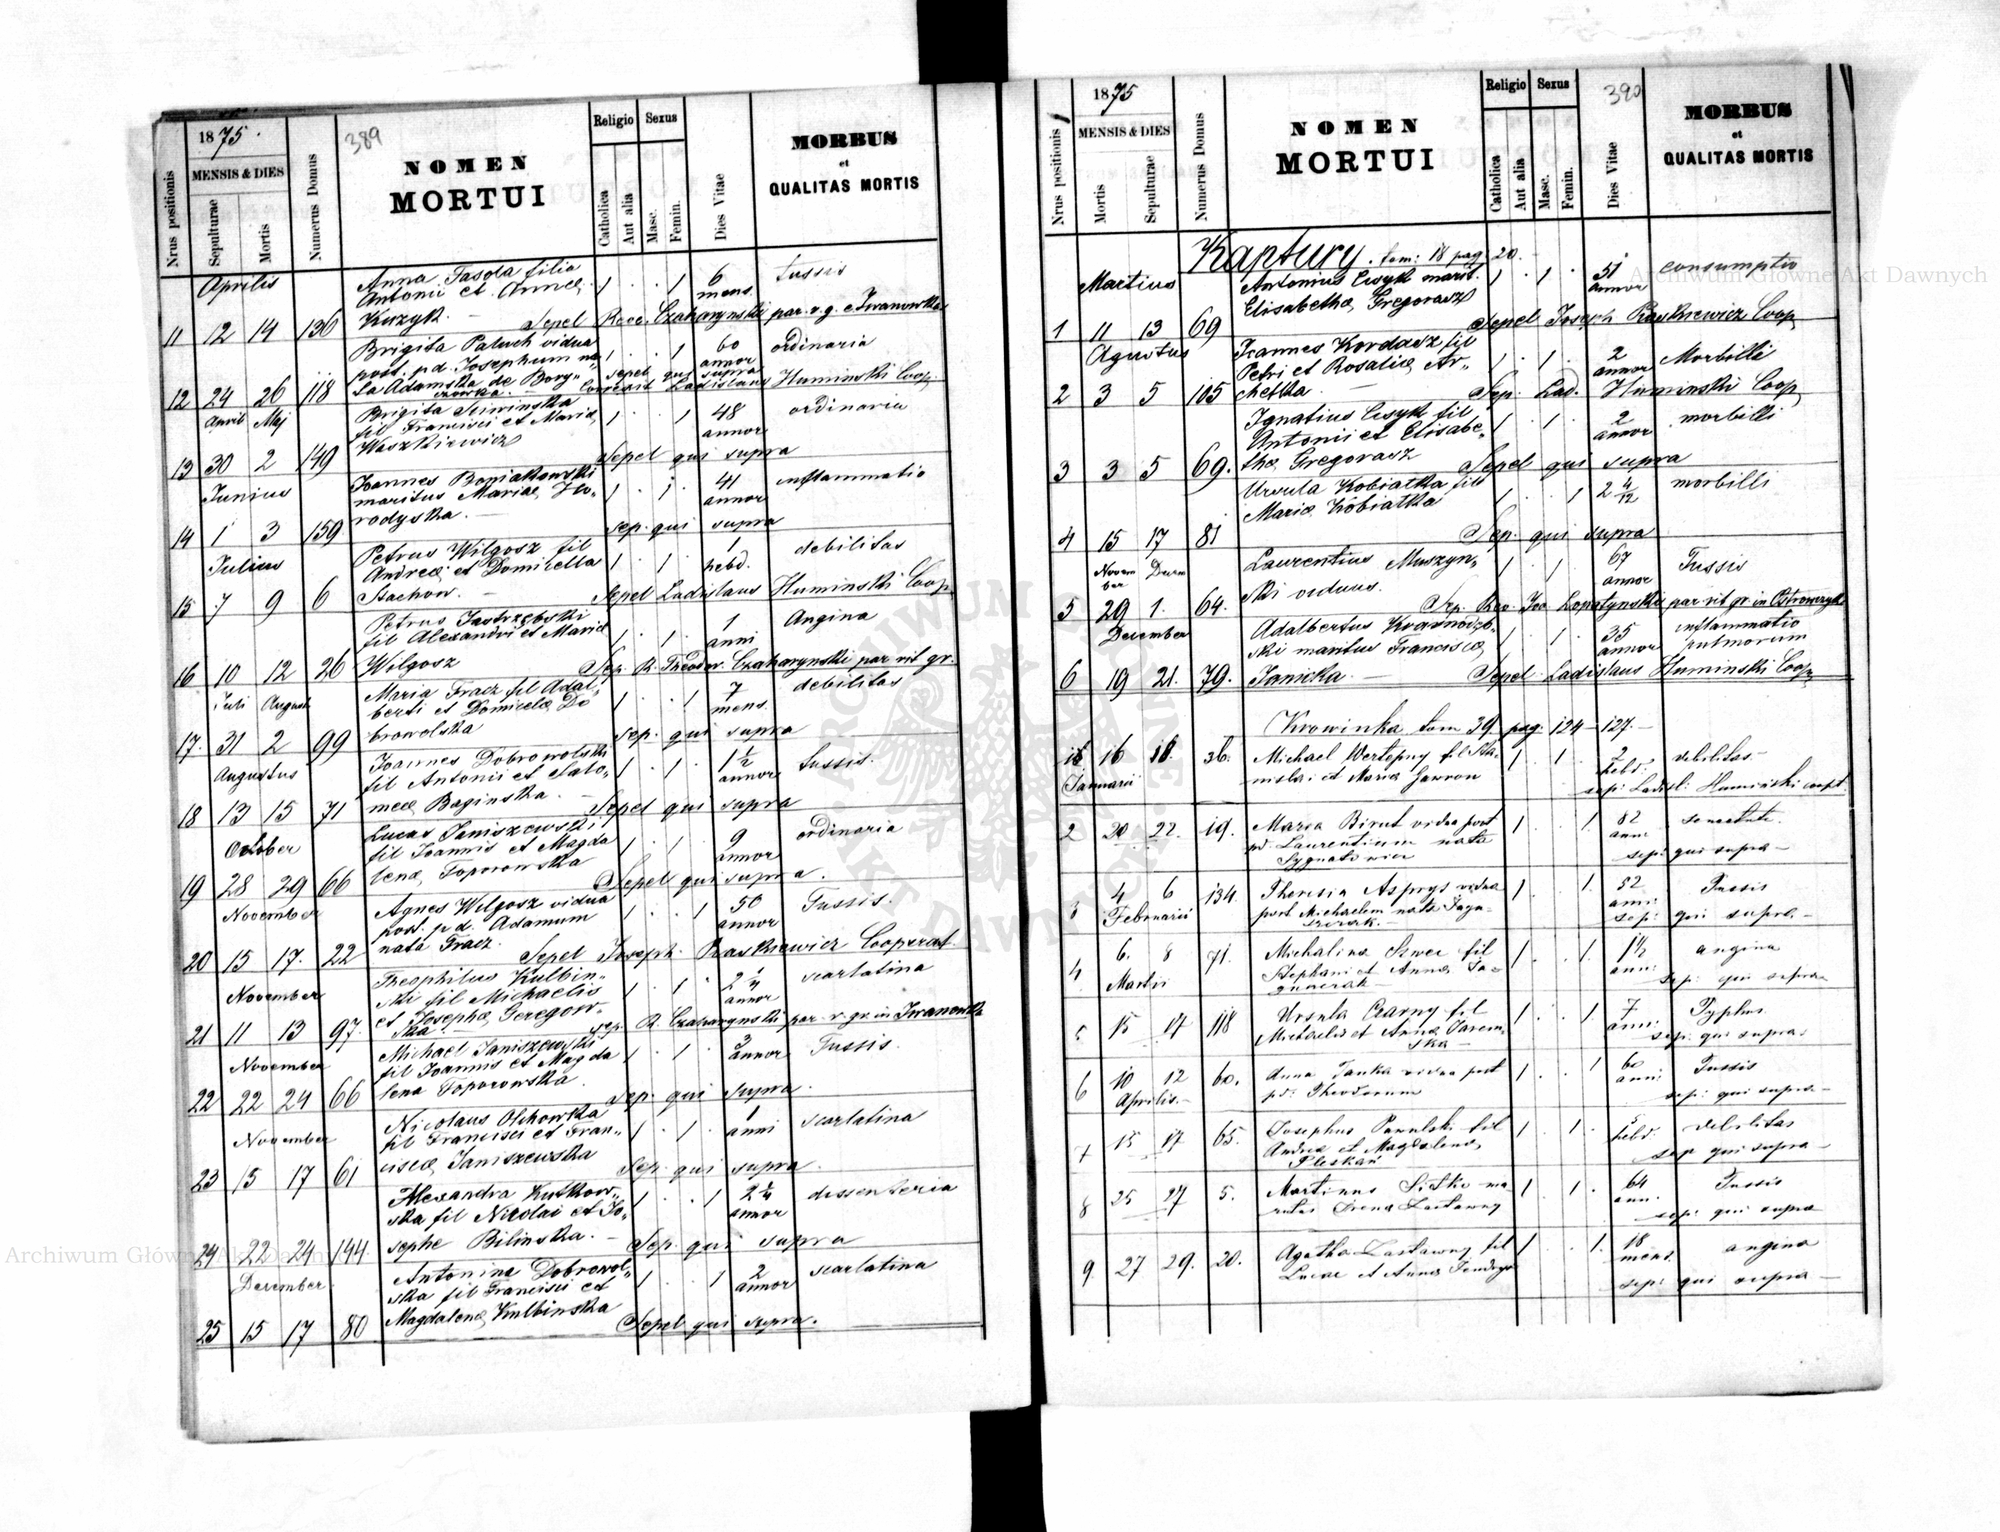 1875.
389
MENSIS & DIES
Nrus positionis
Sepulturae
Mortis
Numerus Domus
NOMEN
MORTUI
Religio
Sexus
Catholica
Aut alia
Masc.
Femin.
Dies Vitae
MORBUS
et
QUALITAS MORTIS
Aprilis
Anna Tasola filia 1 . . 1 6 tussis
Antonii et Annæ mens.
11 12 14 136 Kuzyk. — Sepel Rev. Czaharynski par. r. g. Iwanowka
Brigita Paluch vidua 1 . . 1 60 ordinaria
post. p d. Josephum na- annor
ta Adamska de Bory- sepel qui supra
12 24 26 118 Ladislaus Huminski Coop.
April Maj Brigita 1 . . 1 48 ordinaria
fil Francisci et Mariæ annor
13 30 2 149 Waszkiewicz Sepel qui supra
Junius
Joannes Boniakowski 1 . 1 . 41 inflammatio
maritus Mariæ Ho- annor
14 1 3 159 rodyska. — sep. qui supra
Julius
Petrus Wilgosz fil 1 . 1 . 1 debilitas
Andreæ et Domicella hebd.
15 7 9 6 Stachow. — Sepel Ladislaus Huminski Coop
Petrus Jastrzębski 1 . 1 . 1 Angina
fil Alexandri et Mariæ anni
16 10 12 26 Wilgosz Sep. R. Theodor. Czaharynski par rit gr.
Juli August
Maria Fracz fil Adal- 1 . . 1 7 debilitas
berti et Domicelæ Do mens.
17. 31 2 99 browolska sep. qui supra
Augustus
Joannes Dobrowolski 1 . 1 . 1 1/2 tussis.
fil Antonii et Salo- annor
18 13 15 71 meæ Baginska. — Sepel qui supra
October
Lucas Janiszewski 1 . 1 . 9 ordinaria
fil Joannis et Magda annor
19 28 29 66 lenæ Toporowska Sepel qui supra.
November
Agnes Wilgosz vidua 1 . . 1 50 Tussis.
post. p d. Adamum annor
20 15 17. 22 nata Fracz. Sepel Joseph. Raskiewicz Cooperat.
November
Theophilus Kulbin- 1 . 1 . 2 1/4 scarlatina
ski fil Michaelis annor
et Josephæ Geregor-
21 11 13 97. ska — sep. R. Czaharynski par r. gr. in Iwanowka
November
Michael Janiszewski 1 . 1 . 3 Tussis.
fil Joannis et Magda annor
22 22 24 66 lenæ Toporowska. Sep. qui supra.
November
Nicolaus Olchowska 1 . 1 . 1 scarlatina
fil Francisci et Fran- anni
23 15 17 61 ciscæ Janiszewska Sep. qui supra.
Alexandra Kutkow- 1 . . 1 2 1/4 dissenteria
ska fil Nicolai et Jo- annor
24 22 24 144 sephæ Bilinska. — Sep. qui supra
December
Antonina Dobrowol- 1 . . 1 2 scarlatina
ska fil Francisci et annor
25 15 17 80 Magdalenæ Kulbinska Sepel qui supra.
1875
390
MENSIS & DIES
Nrus positionis
Mortis
Sepulturae
Numerus Domus
NOMEN
MORTUI
Religio
Sexus
Catholica
Aut alia
Masc.
Femin.
Dies Vitae
MORBUS
et
QUALITAS MORTIS
Kaptury. tom: 18 pag: 20.
Martius
Antonius Cisyk marit. 1 . 1 . 51 consumptio
Elisabethæ Gregorasz annor
1 11 13 69 Sepel Joseph Raskiewicz Coop
Agustus
Joannes Kordasz fil 1 . 1 . 2 Morbilli
Petri et Rosaliæ Ar- annor
2 3 5 105 chetka. — Sep. Lad. Huminski Coop
Ignatius Cisyk fil 1 . 1 . 2 morbilli
Antonii et Elisabe- annor
3 3 5 69. thæ Gregorasz Sepel qui supra
Ursula Kobiatka fil 1 . . 1 2 4/12 morbilli
Mariæ Kobiatka
4 15 17 81 Sep. qui supra
Laurentius Muszyn- 1 . 1 . 67 Tussis
Novem ber Decem
ski viduus. annor
5 29 1. 64. Sep. Rev. Joa. Lopatynski par rit gr. in Ostrowczyk
December
Adalbertus 1 . 1 . 35 inflammatio
ski maritus Franciscæ annor pulmorum
6 19 21. 79. Janicka. — Sepel Ladislaus Huminski Coop
Krowinka tom 39 pag. 124-127. —
16 18. 36. Michael Wertepny fil Sta- 1 . 1 . 2 debilitas.
Januarii nislai et Mariæ Gawron hebd.
sep: Ladisl: Huminski coopt.
2 20 22. 19. Maria Birut vidua post 1 . . 1 82 senectute.
pd Laurentium nata ann.
Sygnatowicz sep: qui supra —
3 4 6 134. Theresia Asprys vidua 1 . . 1. 52 Tussis
Februarii post Michaelem nata anni
sep: qui supra. —
4 6. 8 71. Michalina Szwec fil 1 . . 1. 1 1/2 angina
Martii Stephani et Annæ anni
sep: qui supra
5 15 17 118 Ursula Czarny fil 1 . . 1. 7 Typhus.
Michaelis et Annæ Jarem- anni
ska — sep: qui supra:
6 10 12 60. Anna Janka vidua post 1 . . 1 60 Tussis
Aprilis. — pd: Theodorum anni
sep: qui supra. —
7 15 17 65. Josephus Pawulski fil 1 . 1 . 5 debilitas
Andreæ et Magdalenæ hebd.
Pleskan sep qui supra —
8 25 27 5. Martinus Sitko ma- 1 . 1 . 64 Tussis
ritus Irenæ Lastawny ann.
sep: qui supra
9. 27 29. 20. Agatha Lastawny fil 1 . . 1. 18 angina
Lucæ et Annæ mens.
sep: qui supra —
Archiwum Główne Akt Dawnych
Archiwum Główne Akt Dawnych
ARCHIWUM GŁÓWNE AKT DAWNYCH